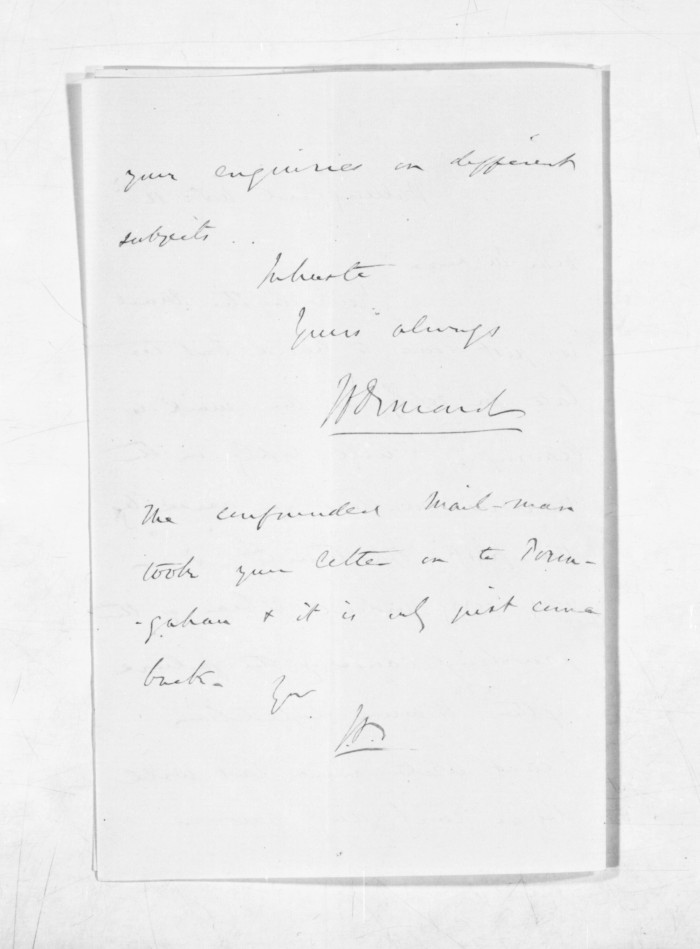 your enquiries on different
subjects . .
In haste
Yours always
J D Ormond
The confounded Mail-man
took your letter on to Poran-
-gahau & it is only just come
back.
Yrs